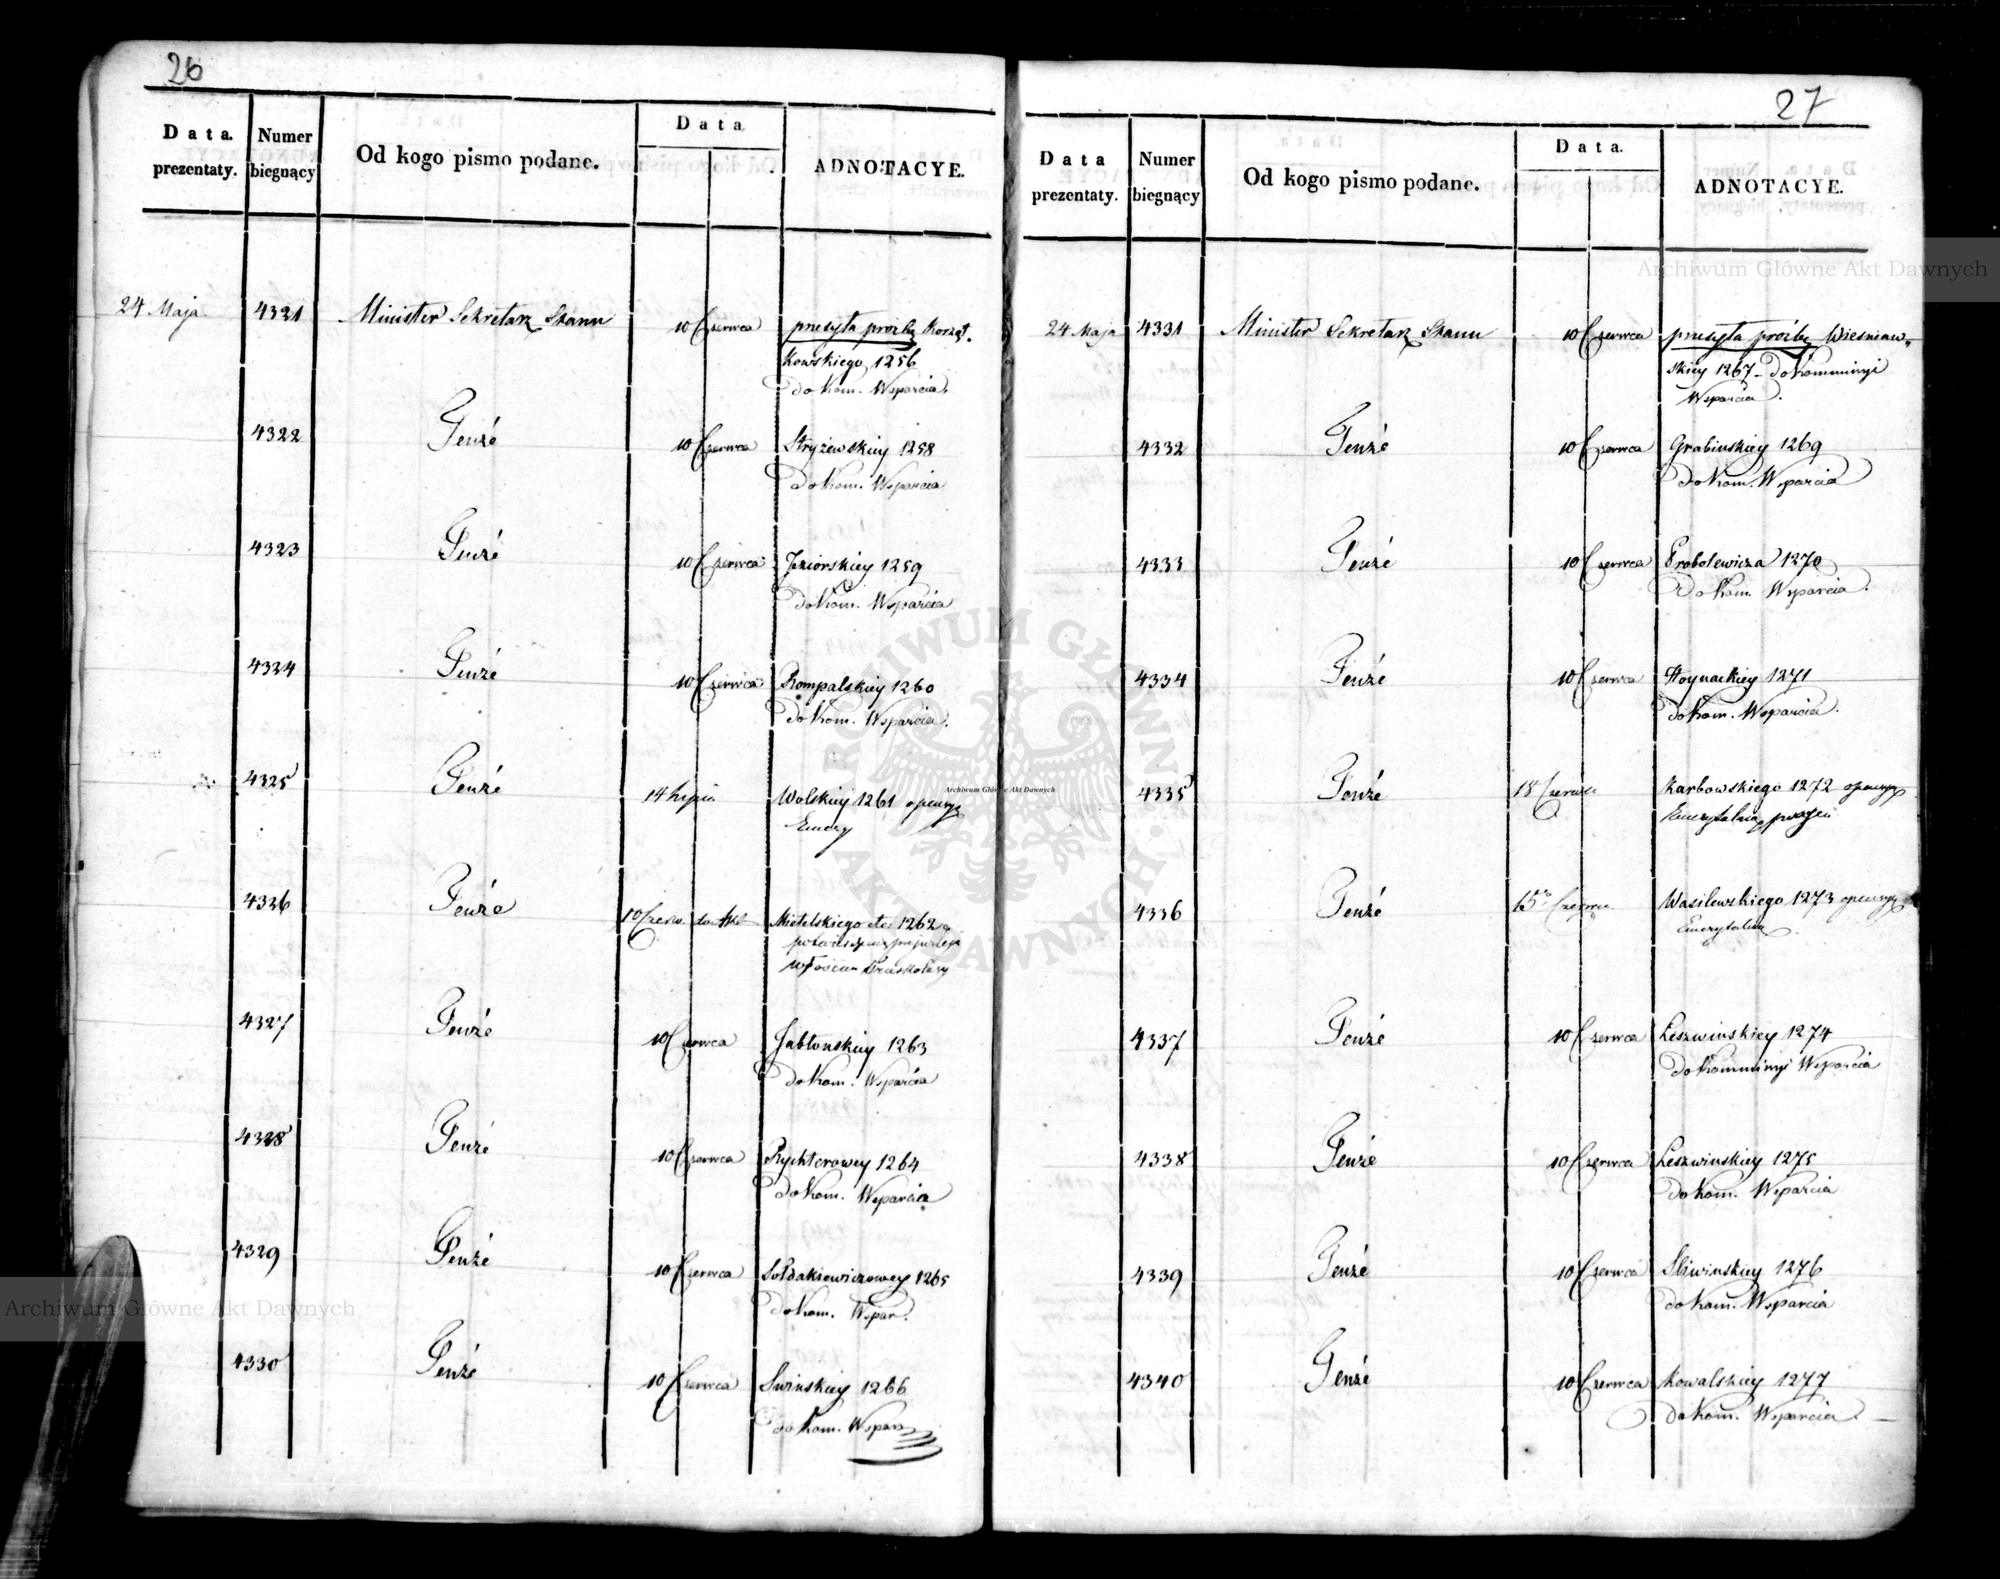 26
Data. prezentaty. Numer biegnący Od kogo pismo podane. Data ADNOTACYE.
24 Maja 4321 Minister Sekretarz Stanu 10 Czerwca przesyła prozbę Korząt-
kowskiego 1256
do Kom. Wsparcia.
4322 Tenże 10 Czerwca Stryżewskiey 1258
do Kom. Wsparcia
4323 Tenże 10 Czerwca Jeziorskiey 1259
do Kom. Wsparcia
4324 Tenże 10 Czerwca Rompalskiey 1260
do Kom. Wsparcia.
4325 Tenże 14 Lipca Wolskiey 1261
4326 Tenże 10 Czerw. do Akt Mietelskiego etc 1262
włościan
4327 Tenże 10 Czerwca Jabłonskiey 1263
do Kom. Wsparcia
4328 Tenże 10 Czerwca Rychterowey 1264
do Kom. Wsparcia
4329 Tenże 10 Czerwca Sołdakiewiczowey 1265
do Kom. Wspar.
4330 Tenże 10 Czerwca Swinskiey 1266
do Kom. Wspar
27
Data prezentaty. Numer biegnący Od kogo pismo podane. Data. ADNOTACYE.
24 Maja 4331 Minister Sekretarz Stanu 10 Czerwca przesyła prozbę Wiesniaw-
skiey 1267 - do Kommissyi
Wsparcia.
4332 Tenże 10 Czerwca Grabinskiey 1269
do Kom. Wsparcia
4333 Tenże 10 Czerwca Probolewicza 1270
do Kom. Wsparcia.
4334 Tenże 10 Czerwca Hoynackiey 1271
do Kom. Wsparcia.
4335 Tenże 18 Czerwca Karbowskiego 1272
4336 Tenże 15 Czerwca Wasilewskiego 1273
4337 Tenże 10 Czerwca Leszwinskiey 1274
do Kommissyi Wsparcia
4338 Tenże 10 Czerwca Leszwinskiey 1275
do Kom. Wsparcia
4339 Tenże 10 Czerwca Sliwinskiey 1276
do Kom. Wsparcia
4340 Tenże 10 Czerwca Kowalskiey 1277
do Kom. Wsparcia.
Archiwum Główne Akt Dawnych
ARCHIWUM GŁÓWNE AKT DAWNYCH
Archiwum Główne Akt Dawnych
Archiwum Główne Akt Dawnych